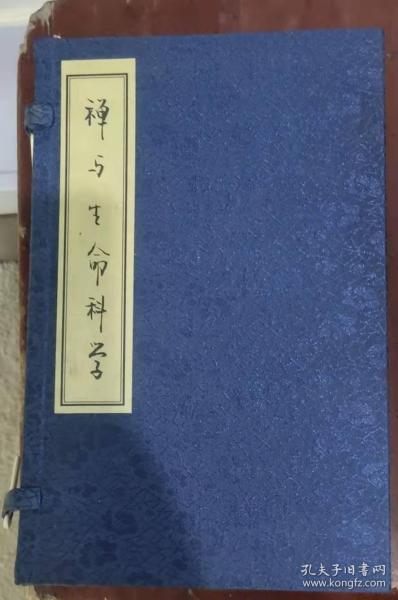 禅与生命科学
孔夫子旧书网
www.kongfz.com